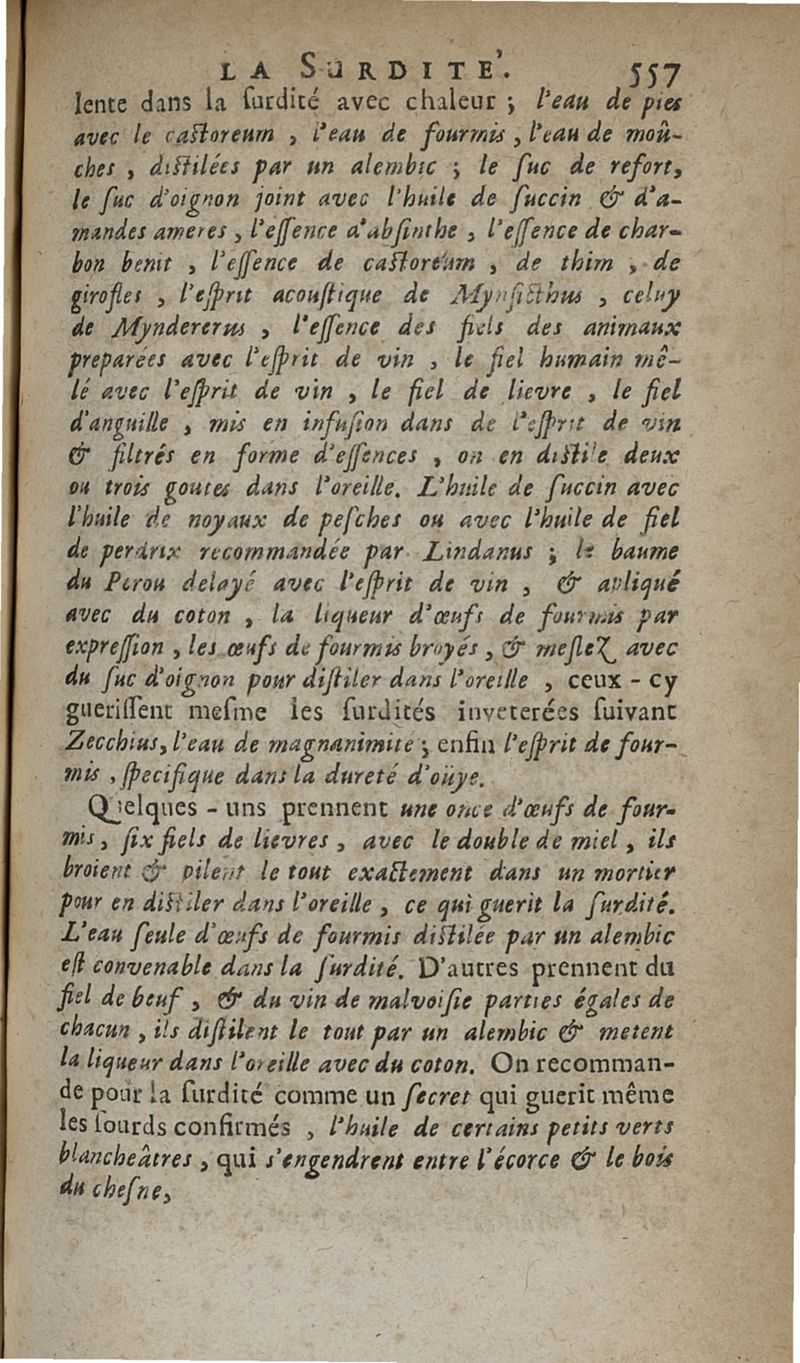 LA SURDITE'. 557
lente dans la surdité avec chaleur ; l'eau de pies
avec le castoreum , l'eau de fourmis , l'eau de moû-
ches , distilées par un alembic ; le suc de refort,
le suc d'oignon joint avec l'huile de succin & d'a-
mandes ameres , l'essence d'absinthe , l'essence de char-
bon benit , l'essence de castoreum , de thim , de
girofles , l'esprit acoustique de Mynsicthus , celuy
de Myndererus , l'essence des fiels des animaux
preparées avec l'esprit de vin , le fiel humain mê-
lé avec l'esprit de vin , le fiel de lievre , le fiel
d'anguille , mis en infusion dans de l'esprit de vin
& filtrés en forme d'essences , on en distile deux
ou trois goutes dans l'oreille. L'huile de succin avec
l'huile de noyaux de pesches ou avec l'huile de fiel
de perdrix recommandée par Lindanus ; le baume
du Perou delayé avec l'esprit de vin , & apliqué
avec du coton , la liqueur d'œufs de fourmis par
expression , les œufs de fourmis broyés , & meslez avec
du suc d'oignon pour distiler dans l'oreille , ceux - cy
guerissent mesme les surdités inveterées suivant
Zecchius, l'eau de magnanimite ; enfin l'esprit de four-
mis , specifique dans la dureté d'oüye.
Quelques - uns prennent une once d'œufs de four-
mis , six fiels de lievres , avec le double de miel , ils
broient & pilent le tout exactement dans un mortier
pour en distiler dans l'oreille , ce qui guerit la surdité.
L'eau seule d'œufs de fourmis distilée par un alembic
est convenable dans la surdité. D'autres prennent du
fiel de beuf , & du vin de malvoisie parties égales de
chacun , ils distilent le tout par un alembic & metent
la liqueur dans l'oreille avec du coton. On recomman-
de pour la surdité comme un secret qui guerit même
les sourds confirmés , l'huile de certains petits verts
blancheâtres , qui s'engendrent entre l'écorce & le bois
du chesne,